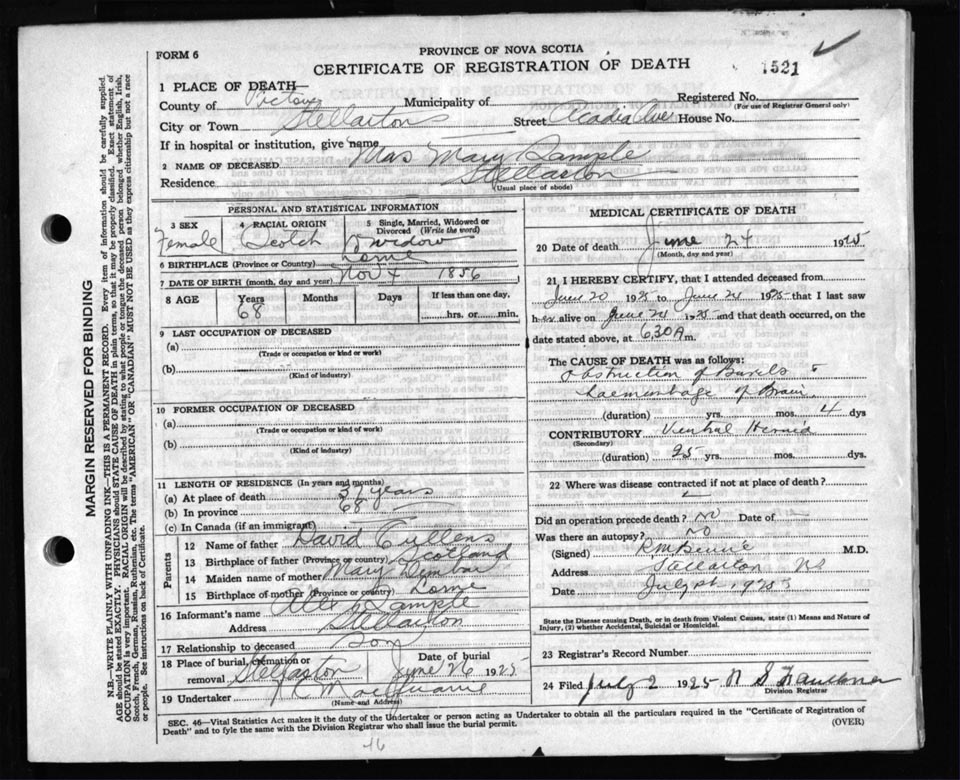 FORM 6
PROVINCE OF NOVA SCOTIA
CERTIFICATE OF REGISTRATION OF DEATH
1521
1 PLACE OF DEATH
County of Pictou Municipality of
Registered No.
(For use of Registrar General only)
City or Town Stellarton Street Acadia Ave House No.
If in hospital or institution, give name
2 NAME OF DECEASED Mrs Mary Sample
Residence Stellarton
(Usual place of abode)
PERSONAL AND STATISTICAL INFORMATION
3 SEX
Female
4 RACIAL ORIGIN
Scotch
5 Single, Married, Widowed or Divorced (Write the word)
widow
6 BIRTHPLACE (Province or Country) Lorne
7 DATE OF BIRTH (month, day and year) Nov 4 1856
8 AGE Years Months Days If less than one day,
68 hrs. or min.
9 LAST OCCUPATION OF DECEASED
(a)
(Trade or occupation or kind or work)
(b)
(Kind of industry)
10 FORMER OCCUPATION OF DECEASED
(a)
(Trade or occupation or kind or work)
(b)
(Kind of industry)
11 LENGTH OF RESIDENCE (In years and months)
(a) At place of death 37 years
(b) In province 68
(c) In Canada (if an immigrant)
Parents
12 Name of father David Cullens
13 Birthplace of father (Province or country) Scotland
14 Maiden name of mother Mary Dunbar
15 Birthplace of mother (Province or country) Lorne
16 Informant's name Alex Sample
Address Stellarton
17 Relationship to deceased Son
18 Place of burial, cremation or removal Stellarton
Date of burial June 26 1925
19 Undertaker
(Name and Address)
MEDICAL CERTIFICATE OF DEATH
20 Date of death June 24 1925
(Month, day and year)
21 I HEREBY CERTIFY, that I attended deceased from
June 20 1925 to June 24 1925 that I last saw
her alive on June 24 1925 and that death occurred, on the
date stated above, at 630 A m.
The CAUSE OF DEATH was as follows:
Obstruction of Bowels
haemorrhage of Brain
(duration) yrs. mos. 4 dys
CONTRIBUTORY Ventral Hernia
(Secondary)
(duration) 25 yrs. mos. dys.
22 Where was disease contracted if not at place of death?
Did an operation precede death? No Date of
Was there an autopsy? No
(Signed) M.D.
Address Stellarton NS
Date July 1st 1925
State the Disease causing Death, or in death from Violent Causes, state (1) Means and Nature of
Injury, (2) whether Accidental, Suicidal or Homicidal.
23 Registrar's Record Number
24 Filed July 2 1925
Division Registrar
SEC. 46—Vital Statistics Act makes it the duty of the Undertaker or person acting as Undertaker to obtain all the particulars required in the "Certificate of Registration of
Death" and to fyle the same with the Division Registrar who shall issue the burial permit.
(OVER)
16
MARGIN RESERVED FOR BINDING
N.B.—WRITE PLAINLY WITH UNFADING INK—THIS IS A PERMANENT RECORD. Every item of information should be carefully supplied.
AGE should be stated EXACTLY. PHYSICIANS should STATE CAUSE OF DEATH in plain terms, so that it may be properly classified. Exact statement of
OCCUPATION is very important. RACIAL ORIGIN will be described by stating to what people or tongue the deceased person belonged, whether English, Irish,
Scotch, French, German, Russian, Ruthenian, etc. The terms "AMERICAN" OR "CANADIAN" MUST NOT BE USED as they express citizenship but not a race
or people. See instructions on back of Certificate.